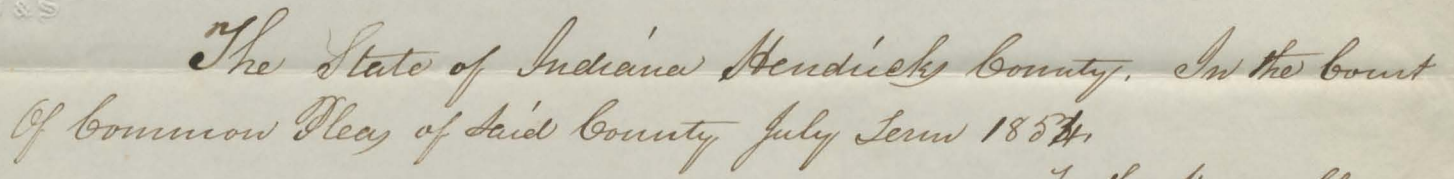 & S
The State of Indiana Hendricks County. In the Court
Of Common Pleas of Said County July Term 1854.